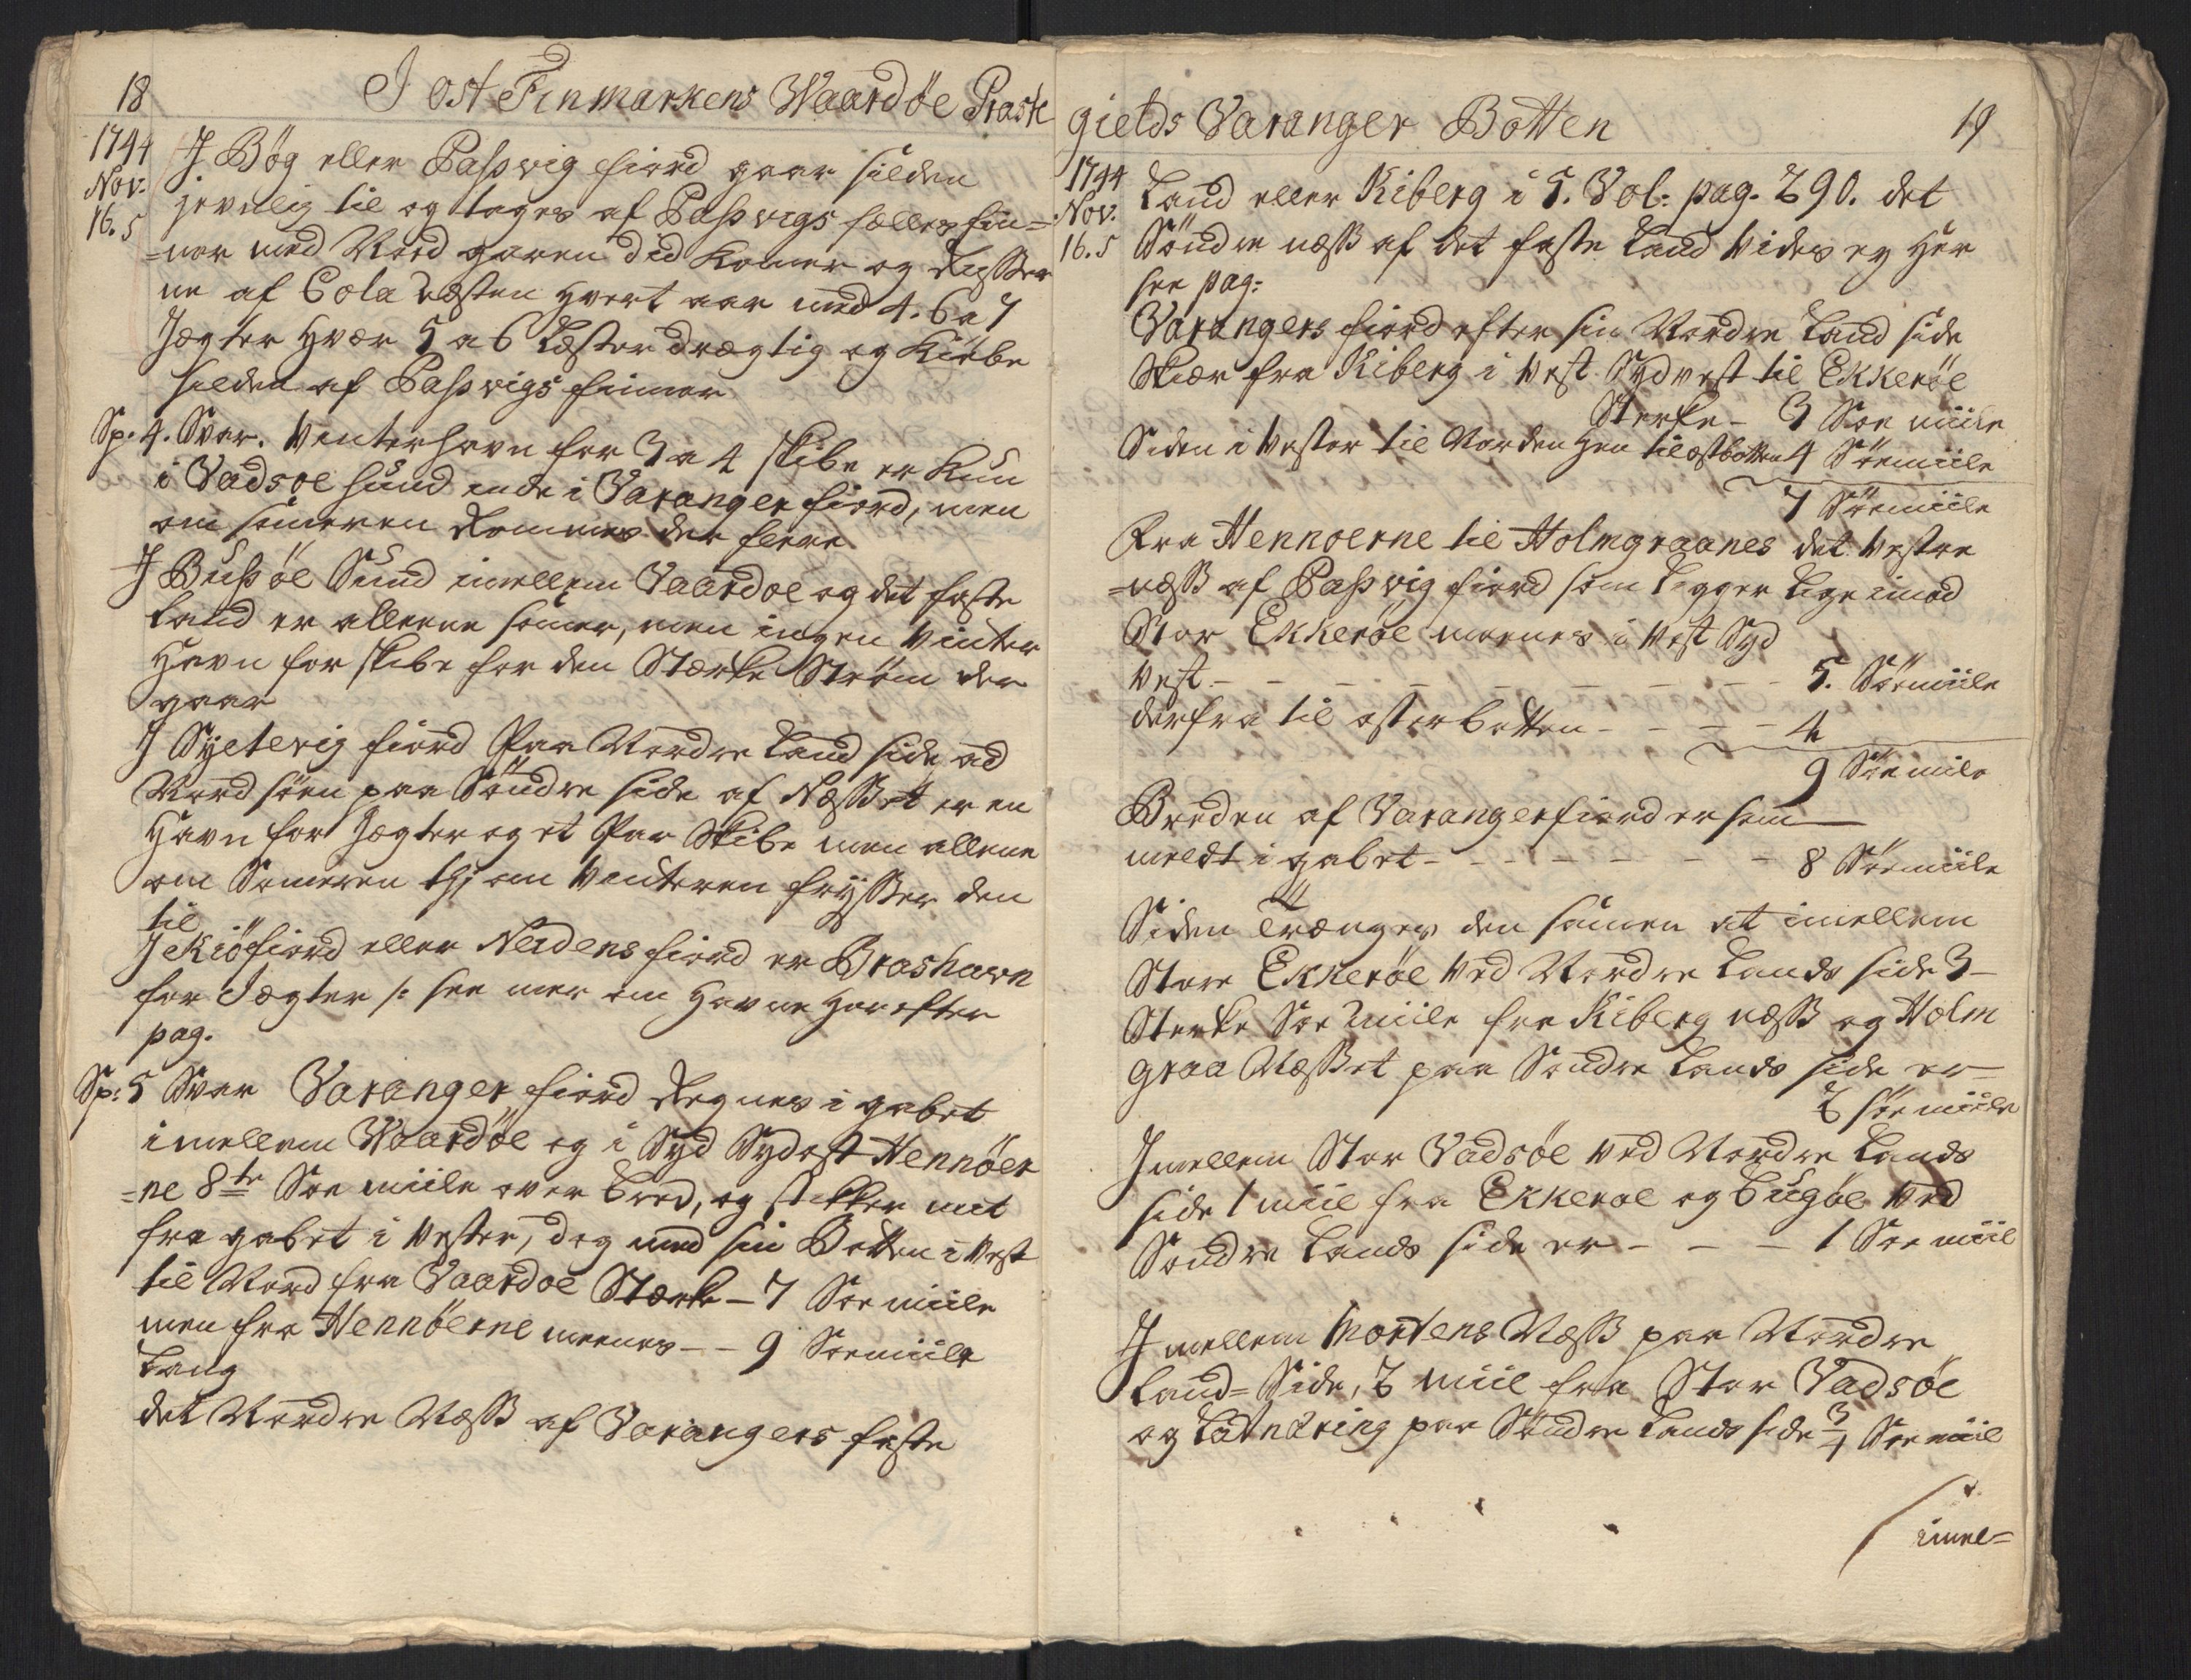 18
I Ost Finmarkens Waardøe Præste
1744
Nov.
16. 5
I Bøg eller Pasvig fiord gaar silden
jevnlig til og tages af Pasvigs fælles fin=
=ner med Vod garn did komer og Rysser
ne af Cola næsten hvert aar med 4. 6 a 7
Jægter hver 5 a 6 Læster drægtig og kiøbe
silden af Pasvigs finner
Sp. 4. Svar. Vinterhavn for 3 a 4 skibe er kun
i Vadsøe sund inde i Varanger fiord, men
om someren kommes der flere
I Busøe Sund imellem Vaardøe og det faste
land er allene somer, men ingen Vinter
Havn for skibe for den Stærke Strøm der
gaar
I Syltevig fiord Paa Nordre Land side ad
Nord søen paa Søndre side af Næsset er en
Havn for Jægter og et Par Skibe men allene
om Someren thj om Vinteren frysser den
til
I Kiøfiord eller Neidens fiord er Brashavn
for Jægter /: see mer om Havne her efter
pag.
Sp: 5 Svar Varanger fiord Regnes i gabet
imellem Waardøe og i Syd Sydost Hennøer
=ne 8te Søe miile over bred, og stikker int
fra gabet i Vester, dog med sin Botten i Vest
til Nord fra Vaardøe Stærke – 7 Søe miile
men fra Hennøerne meenes – – 9 Søemiile
Lang
det Nordre Næss af Varangers faste
gields Varanger Botten
19
1744
Nov.
16. 5
Land eller Kiberg i 5. Vol: pag. 290. det
Søndre næss af det faste Land vides ey her
see pag:
Varangers fiord efter sin Nordre Land side
Skiær fra Kiberg i Vest Sydvest til Ekkerøe
Sterke – 3 Søe miile
Siden i Vester til Norden hen til østbotten 4 Søemiile
7 Søemiile
Fra Hennøerne til Holmgraanes det Vestre
=næss af Pasvig fiord som ligger lige imod
Stor Ekkerøe meenes i Vest Syd
Vest – – – – – – – – – 5. Søemiile
derfra til østerbotten – – – – 4
9 Søe miile
Breden af Varangerfiord er som
meldt i gabet – – – – – – – 8 Søemiile
Siden trænges den samen at imellem
Store Ekkerøe ved Nordre Lands side 3 –
Sterke Søe Miile fra Kiberg næss og Holm
graa Næsset paa Søndre Lands side er
2 søe miile
Imellem Stor Vadsøe ved Nordre Lands
side 1 miil fra Ekkerøe og Bugøe ved
Søndre Lands side er – – – 1 Søe miil
Imellem Mortens Næss paa Nordre
Land= Side, 2 miil fra Stor Vadsøe
og Latnæring paa Søndre Lands side 3/4 Søe miil
imel=